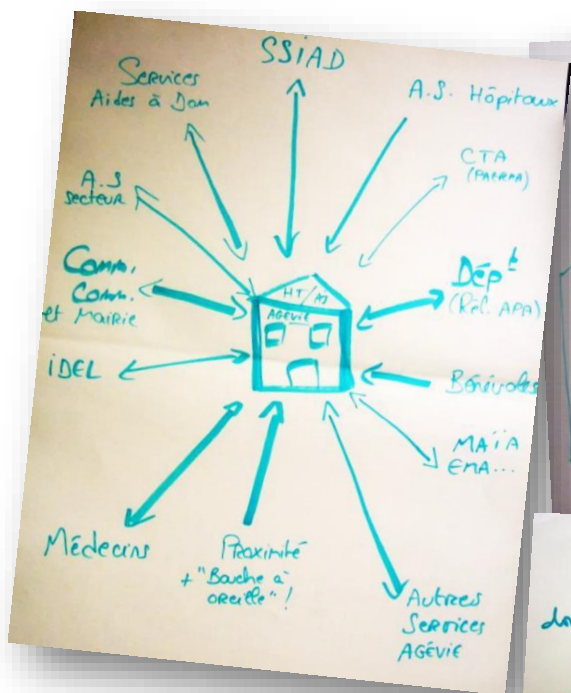 SSiAD
Services
Aides à Dom
A.S. Hôpitaux
CTA
(PAERPA)
A.S
secteur
Comm.
Comm.
et Mairie
Dépt
(Réf. APA)
HT/
AGÉVIE
iDEL
Bénévoles
MAÏA
EMA...
Médecins
Proximité
+ "Bouche à
oreille" !
Autres
Services
AGÉVIE